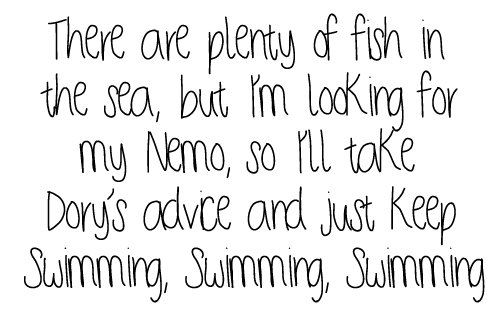 There are plenty of fish in
the sea, but I'm looking for
my Nemo, so I'll take
Dory's advice and just Keep
Swimming, Swimming, Swimming